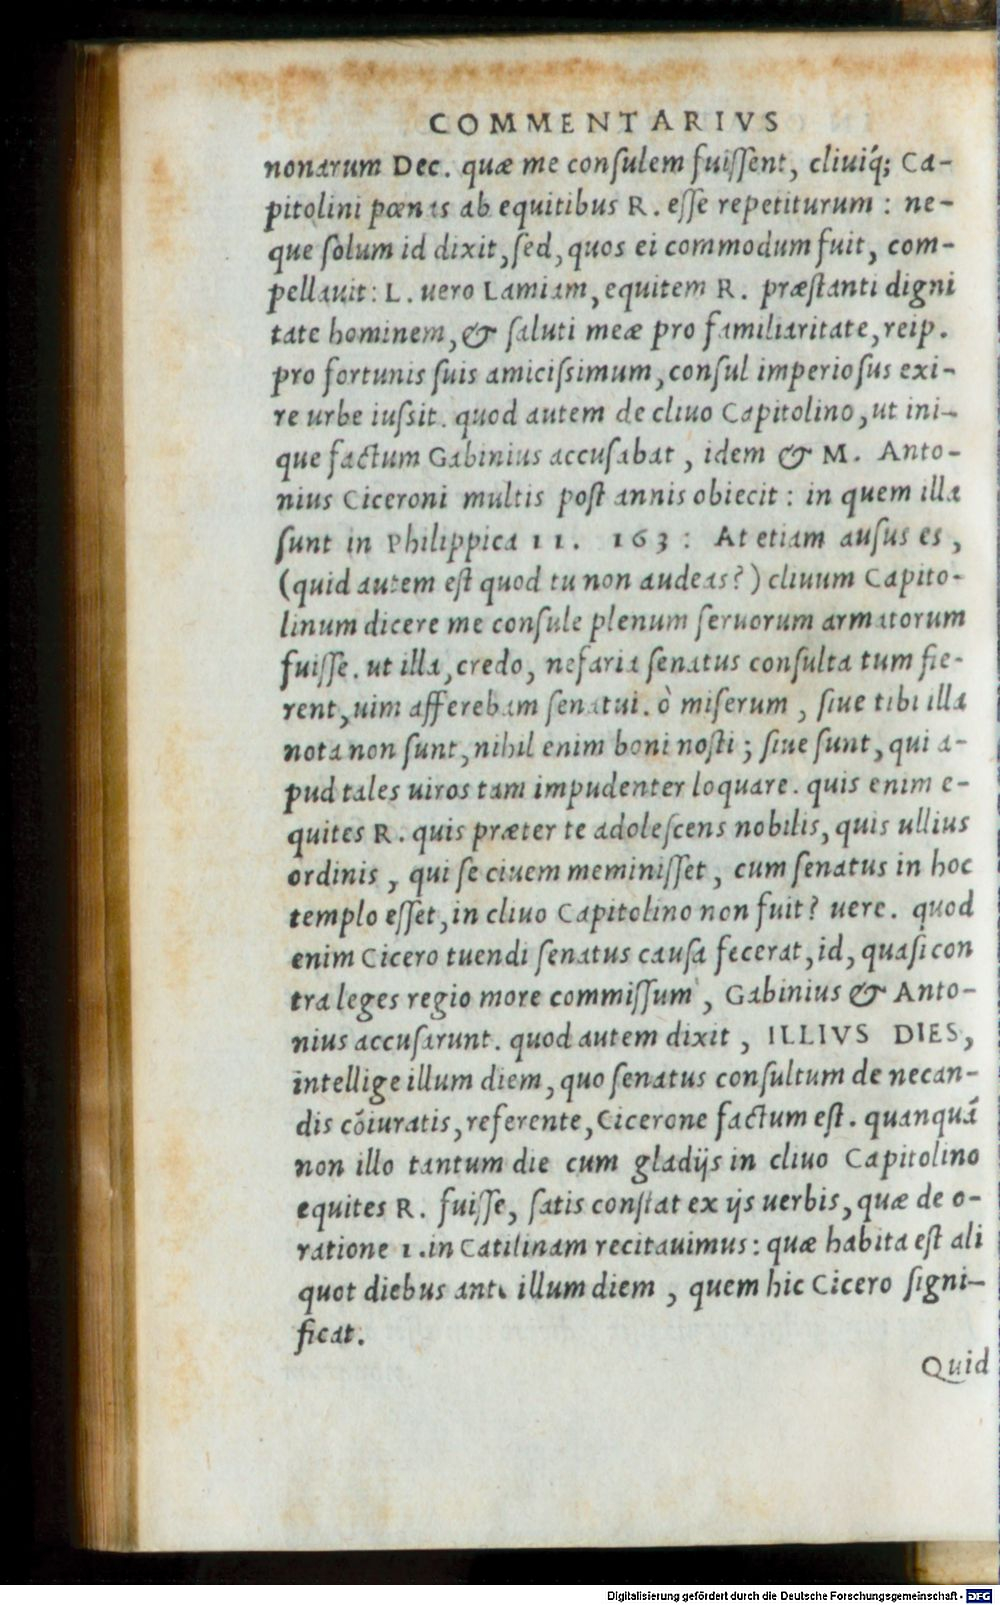 COMMENTARIVS
nonarum Dec. quæ me conſulem fuiſſent, cliuiq́; Ca-
pitolini pœnas ab equitibus R. eſſe repetiturum: ne-
que ſolum id dixit, ſed, quos ei commodum fuit, com-
pellauit: L. uero Lamiam, equitem R. præſtanti digni
tate hominem, & ſaluti meæ pro familiaritate, reip.
pro fortunis ſuis amiciſsimum, conſul imperioſus exi-
re urbe iuſsit. quod autem de cliuo Capitolino, ut ini-
que factum Gabinius accuſabat, idem & M. Anto-
nius Ciceroni multis poſt annis obiecit: in quem illa
ſunt in Philippica 11. 163: At etiam auſus es,
(quid autem eſt quod tu non audeas?) cliuum Capito-
linum dicere me conſule plenum ſeruorum armatorum
fuiſſe. ut illa, credo, nefaria ſenatus conſulta tum fie-
rent, uim afferebam ſenatui. ò miſerum, ſiue tibi illa
nota non ſunt, nihil enim boni noſti; ſiue ſunt, qui a-
pud tales uiros tam impudenter loquare. quis enim e-
quites R. quis præter te adoleſcens nobilis, quis ullius
ordinis, qui ſe ciuem meminiſſet, cum ſenatus in hoc
templo eſſet, in cliuo Capitolino non fuit? uere. quod
enim Cicero tuendi ſenatus cauſa fecerat, id, quaſi con
tra leges regio more commiſſum, Gabinius & Anto-
nius accuſarunt. quod autem dixit, ILLIVS DIES,
intellige illum diem, quo ſenatus conſultum de necan-
dis cōiuratis, referente, Cicerone factum eſt. quanquā
non illo tantum die cum gladijs in cliuo Capitolino
equites R. fuiſſe, ſatis conſtat ex ijs uerbis, quæ de o-
ratione 1. in Catilinam recitauimus: quæ habita eſt ali
quot diebus ante illum diem, quem hic Cicero ſigni-
ficat.
Quid
Digitalisierung gefördert durch die Deutsche Forschungsgemeinschaft - DFG